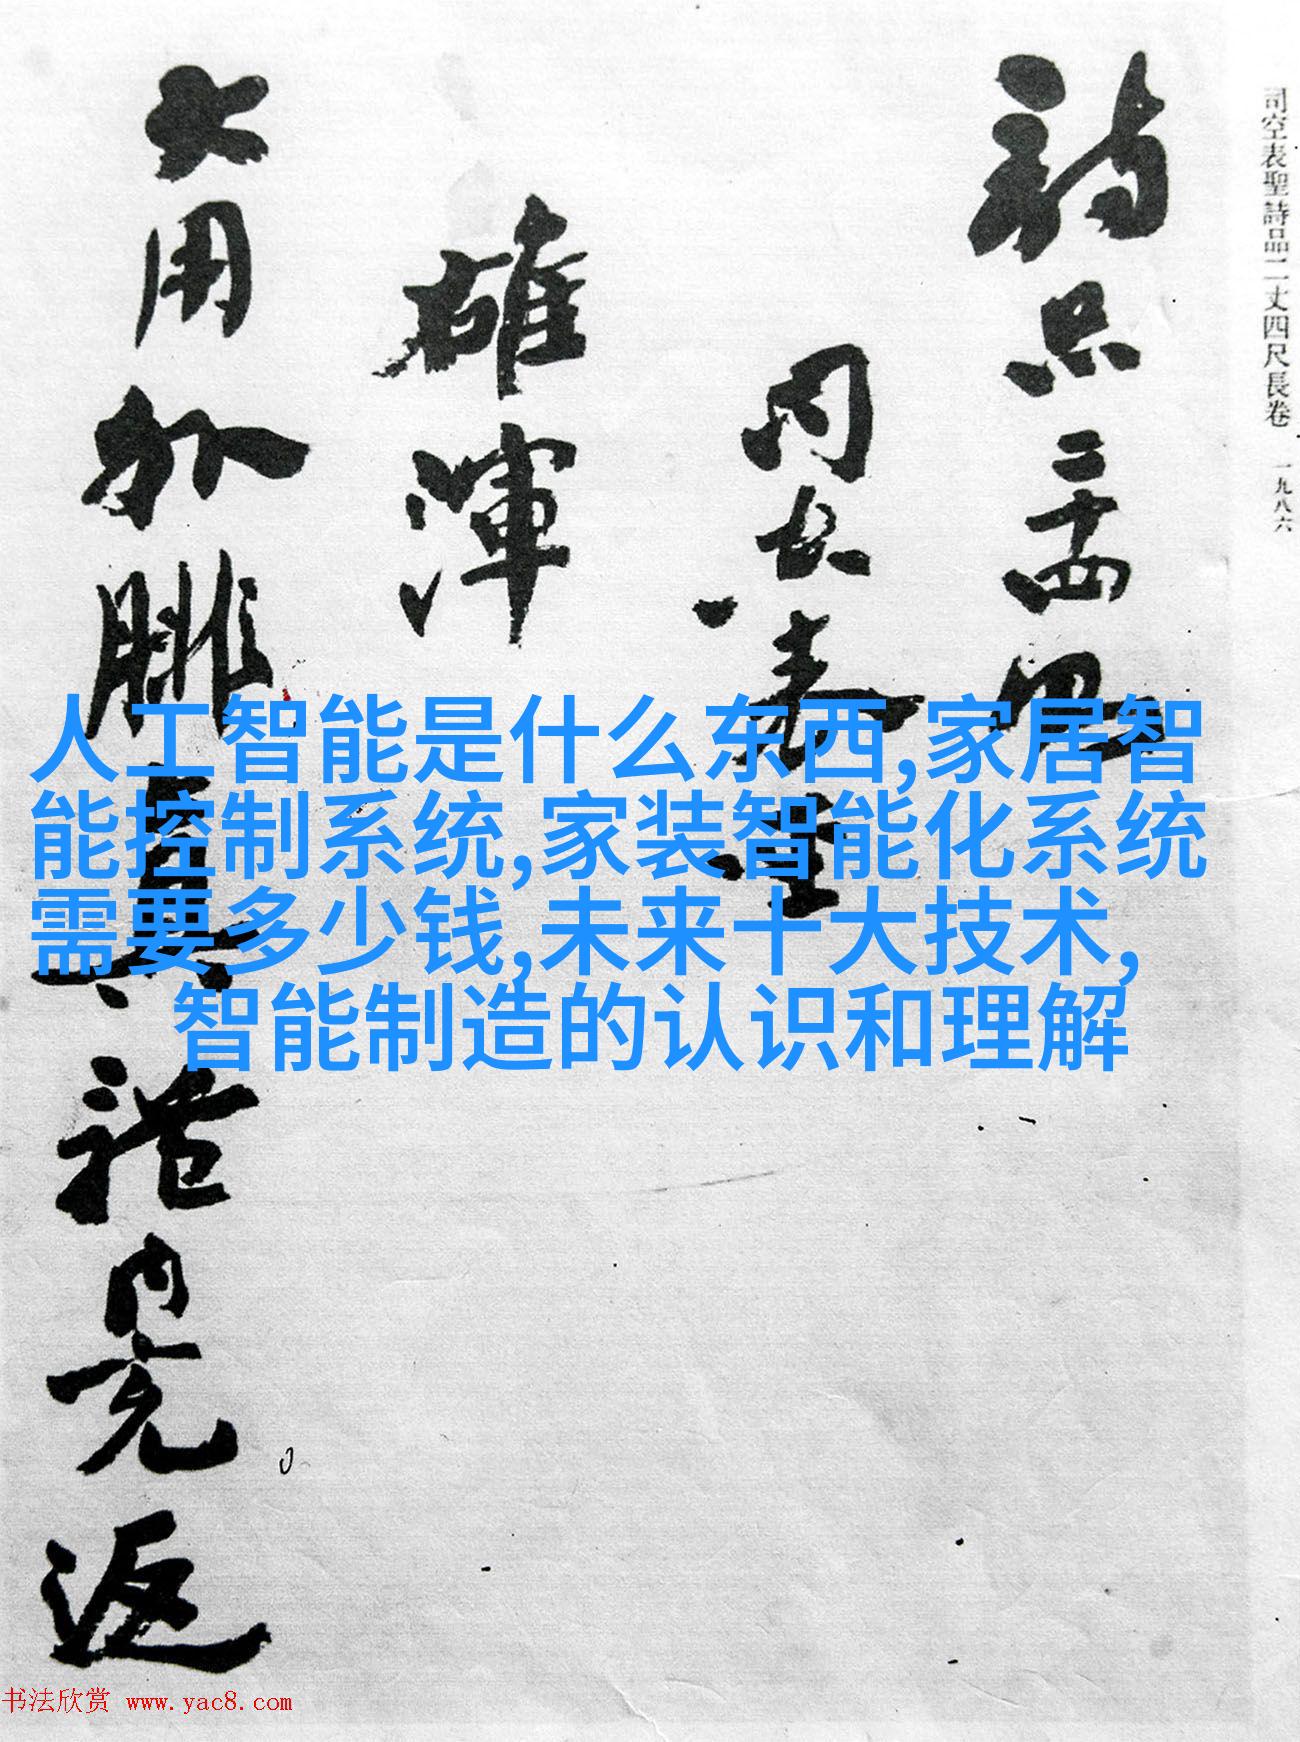 司空表聖詩品二丈四尺長卷 一九八六
詩品二十四
司空表聖
雄渾
大用外腓真體內充返
人工智能是什么东西,家居智
能控制系统,家装智能化系统
需要多少钱,未来十大技术,
智能制造的认识和理解
书法欣赏 www.yac8.com